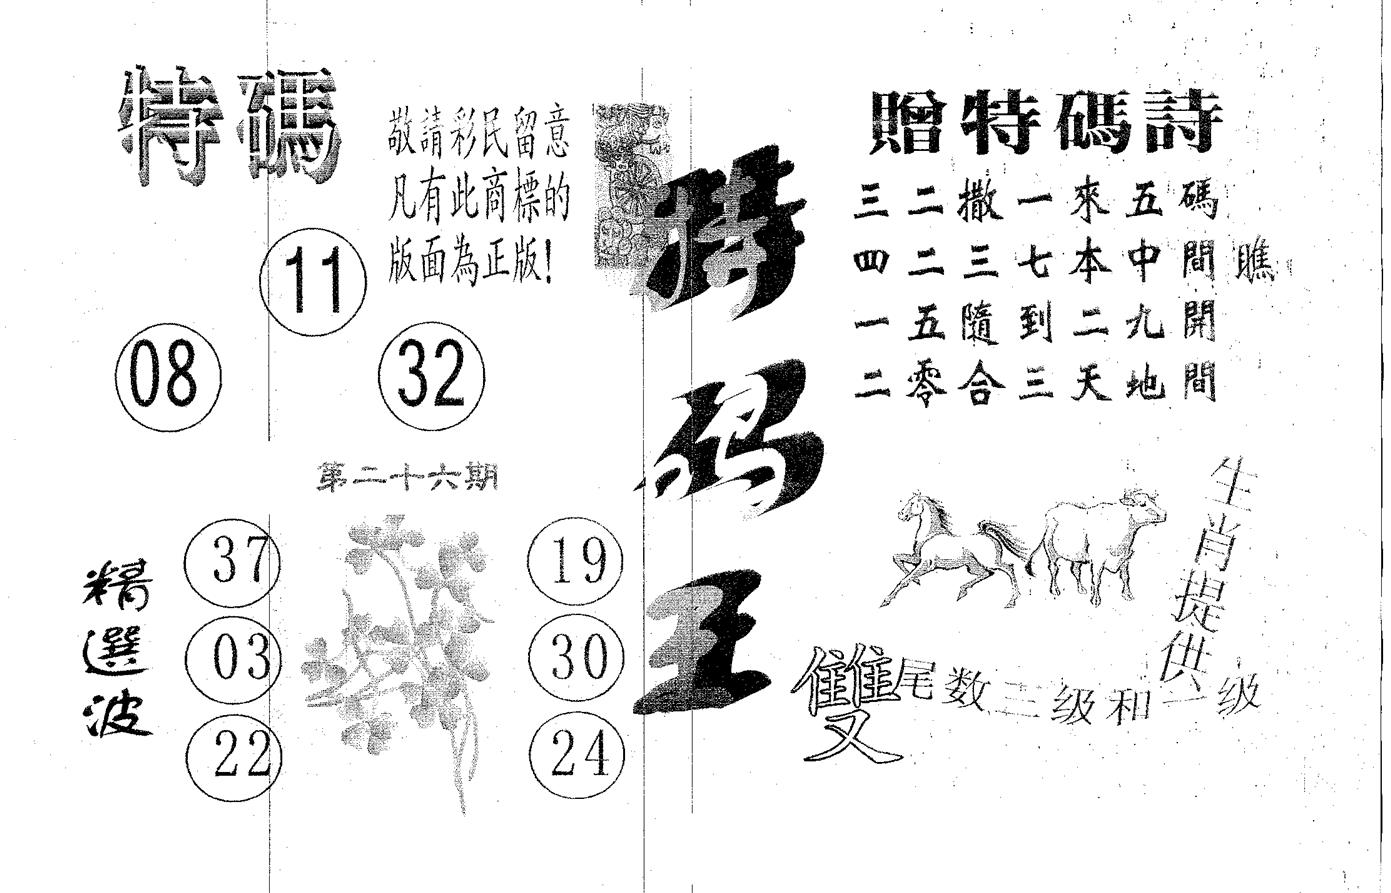 特碼
敬請彩民留意
凡有此商標的
版面為正版!
11
08
32
第二十六期
精選波
37
03
22
19
30
24
特码王
贈特碼詩
三二撒一來五碼
四二三七本中間瞧
一五隨到二九開
二零合三天地間
生肖提供
雙尾数二级和一级